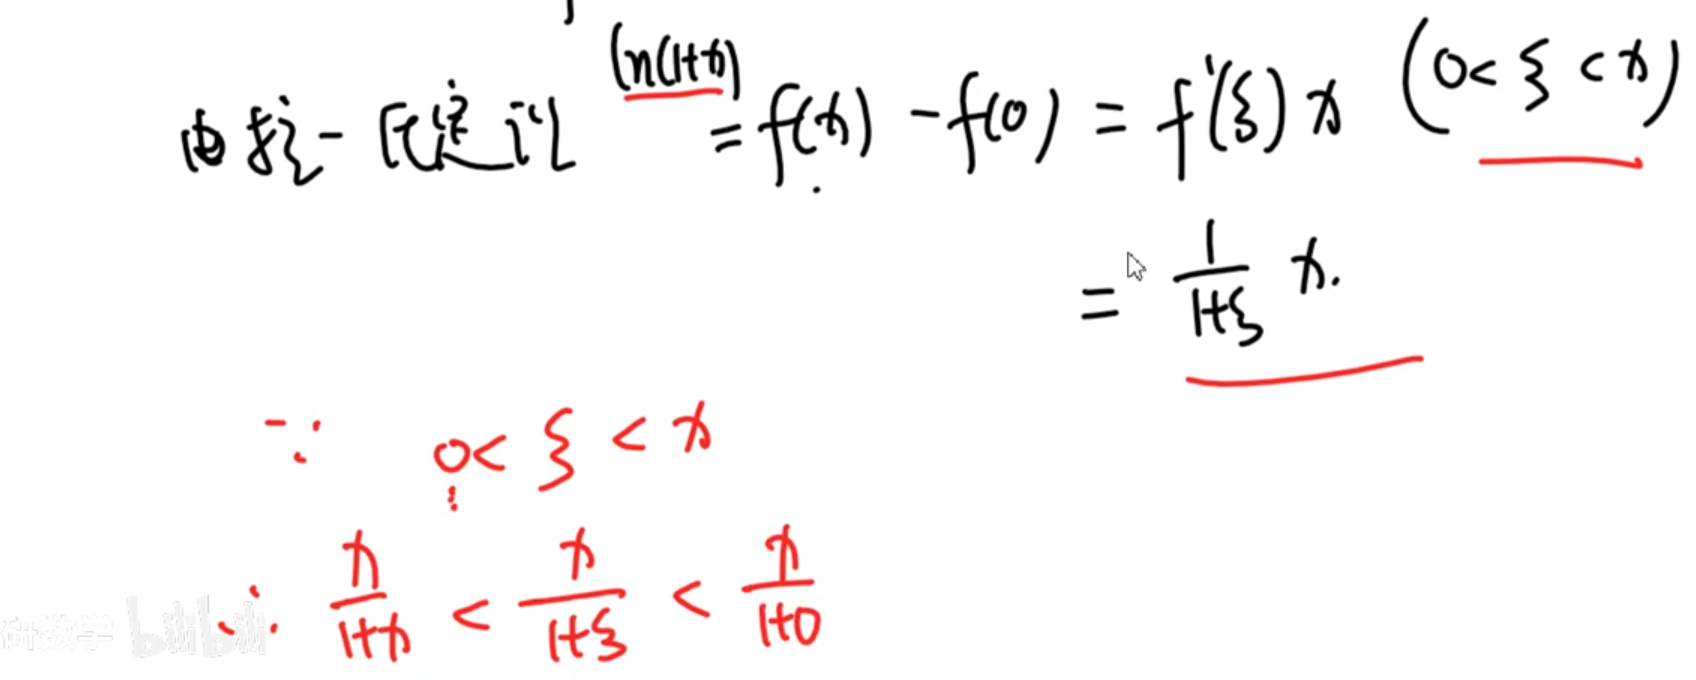 由拉氏定理 ln(1+x) = f(x) - f(0) = f'(ξ) x (0 < ξ < x)
= \frac{1}{1+ξ} x.
∵ 0 < ξ < x
∴ \frac{x}{1+x} < \frac{x}{1+ξ} < \frac{x}{1+0}
研数学 bilibili